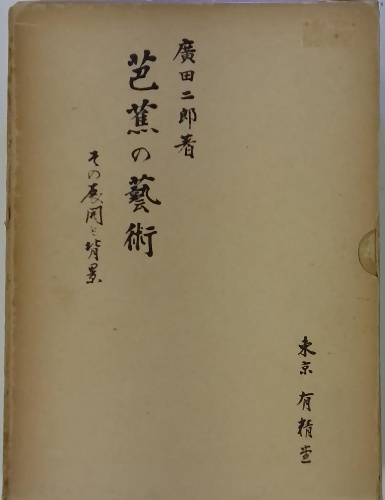 廣田二郎著
芭蕉の藝術
その展開と背景
東京 有精堂